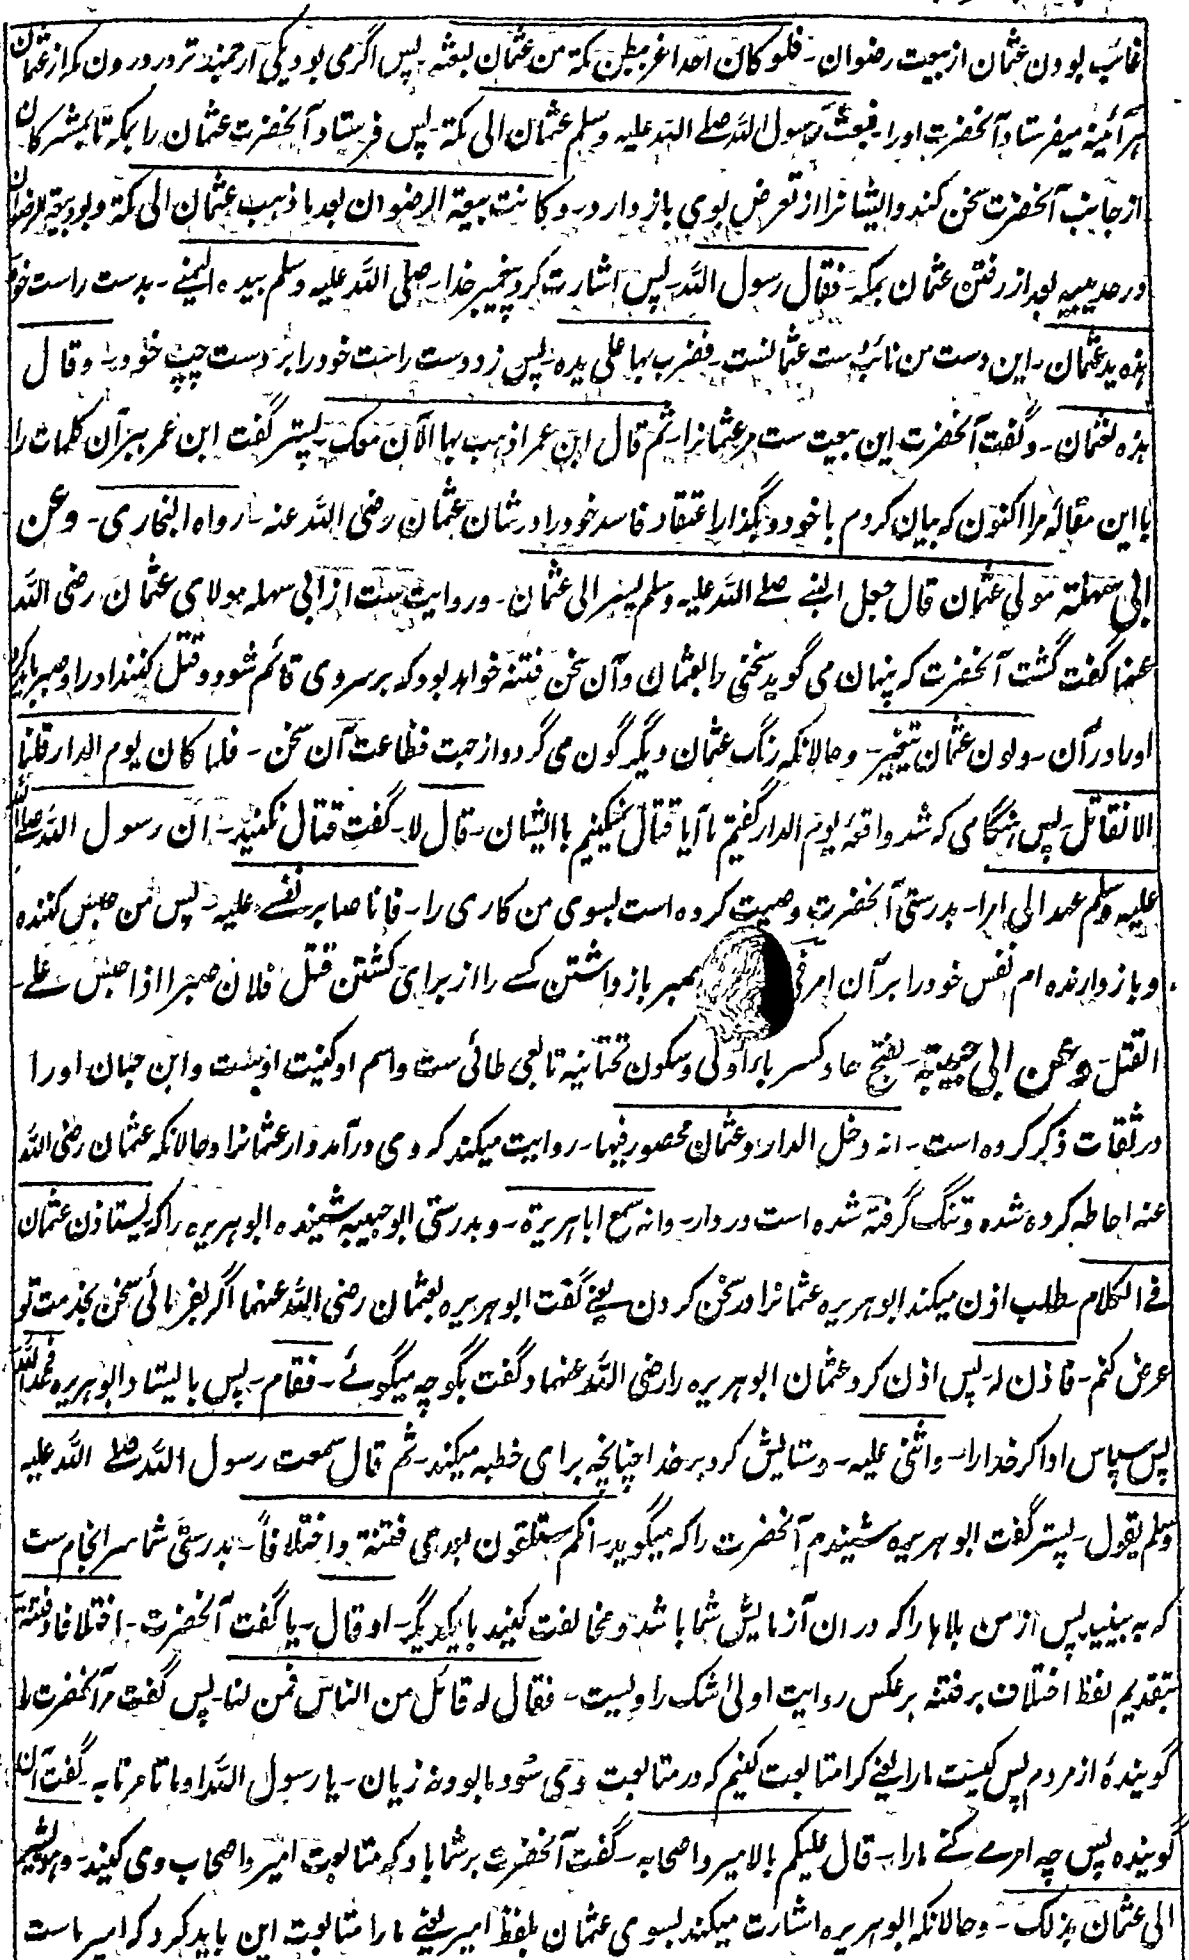 غائب بودن عثمان از بیعت رضوان ـ فلو کان احد اعز ببطن مکة من عثمان لبعثه ـ پس اگر می بود یکی ارجمند تر در درون مکه از عثمان
هر آئینه میفرستاد آنحضرت اورا ـ فبعث رسول الله صلے الله علیه وسلم عثمان الی مکة ـ پس فرستاد آنحضرت عثمان را بمکه تا بمشرکان
از جانب آنحضرت سخن کند و ایشانرا از تعرض بوی باز دارد ـ و کانت بیعة الرضوان بعد ما ذهب عثمان الی مکة و بود بیعة الرضوان
در حدیبیه بعد از رفتن عثمان بمکه ـ فقال رسول الله ـ پس اشارت کرد پیغمبر خدا ـ صلی الله علیه وسلم بیده الیمنے ـ بدست راست خود
هذه ید عثمان ـ این دست من نائب دست عثمانست ـ فضرب بها علی یده ـ پس زد دست راست خود را بر دست چپ خود ـ و قال
هذه لعثمان ـ و گفت آنحضرت این بیعت ست مر عثمانرا ـ ثم قال ابن عمر اذهب بها الآن معک ـ پستر گفت ابن عمر ببر آن کلمات را
با این مقالهٔ مرا اکنون که بیان کردم با خود و بگذار اعتقاد فاسد خود را در شان عثمان رضی الله عنه ـ رواه البخاری ـ وعن
ابی سهلة مولی عثمان قال جعل النبے صلے الله علیه وسلم یسر الی عثمان ـ و روایت ست از ابی سهله مولای عثمان رضی الله
عنها گفت گشت آنحضرت که پنهان می گوید سخنی را بعثمان و آن سخن فتنه خواهد بود که بر سر وی قائم شود و قتل کنند اورا و صبر باید کرد
اورا در آن ـ ولون عثمان یتغیر ـ و حالانکه رنگ عثمان دیگر گون می گردد از جهت فظاعت آن سخن ـ فلما کان یوم الدار قلنا
الا نقاتل ـ پس هنگامی که شد واقعهٔ یوم الدار گفتیم ما آیا قتال نمیکنیم با ایشان ـ قال لا ـ گفت قتال نکنید ـ ان رسول الله صلے الله
علیه وسلم عهد الی امرا ـ بدرستی آنحضرت وصیت کرده است بسوی من کاری را ـ فانا صابر نفسے علیه ـ پس من حبس کننده
و باز دارنده ام نفس خود را بر آن امر صبر باز داشتن کسے را از برای کشتن قتل فلان صبرا اذا حبس علے
القتل ـ وعن ابی حبیبة ـ بفتح حا و کسر باء اولی و سکون تحتانیه تابعی طائی ست و اسم او کنیت اوست و ابن حبان اورا
در ثقات ذکر کرده است ـ انه دخل الدار و عثمان محصور فیها ـ روایت میکند که وی در آمد دار عثمانرا و حالانکه عثمان رضی الله
عنه احاطه کرده شده و تنگ گرفته شده است در دار ـ وانه سمع ابا هریرة ـ و بدرستی ابو حبیبه شنیده ابو هریره را که یستاذن عثمان
فے الکلام ـ طلب اذن میکند ابو هریره عثمانرا در سخن کردن یعنے گفت ابو هریره بعثمان رضی الله عنهما اگر بفرمائی سخن بخدمت تو
عرض کنم ـ فاذن له ـ پس اذن کرد عثمان ابو هریره را رضی الله عنهما و گفت بگو چه میگوئے ـ فقام ـ پس بایستاد ابو هریره فحمد الله
پس سپاس ادا کرد خدارا ـ واثنی علیه ـ و ستایش کرد بر خدا چنانچه برای خطبه میکند ـ ثم قال سمعت رسول الله صلے الله علیه
وسلم یقول ـ پستر گفت ابو هریره شنیدم آنحضرت را که میگوید ـ انکم ستلقون بعدی فتنة و اختلافاً ـ بدرستی شما سر انجام ست
که به بینید پس از من بلاها را که در ان آزمایش شما باشد و مخالفت کنید با یکدیگر ـ او قال ـ یا گفت آنحضرت ـ اختلافا و فتنة
بتقدیم لفظ اختلاف بر فتنه بر عکس روایت اولی شک راویست ـ فقال له قائل من الناس فمن لنا ـ پس گفت مر آنحضرت را
گویندهٔ از مردم پس کیست مارا یعنے کرا متابعت کنیم که در متابعت وی سود ما بود نه زیان ـ یا رسول الله او ما تامرنا به ـ گفت آن
گوینده پس چه امرے کنے مارا ـ قال علیکم بالامیر واصحابه ـ گفت آنحضرت بر شما باد که متابعت امیر و اصحاب وی کنید ـ وهو یشیر
الی عثمان بذلک ـ و حالانکه ابو هریره اشارت میکند بسوی عثمان بلفظ امیر یعنے مارا متابعت این باید کرد که امیر ماست